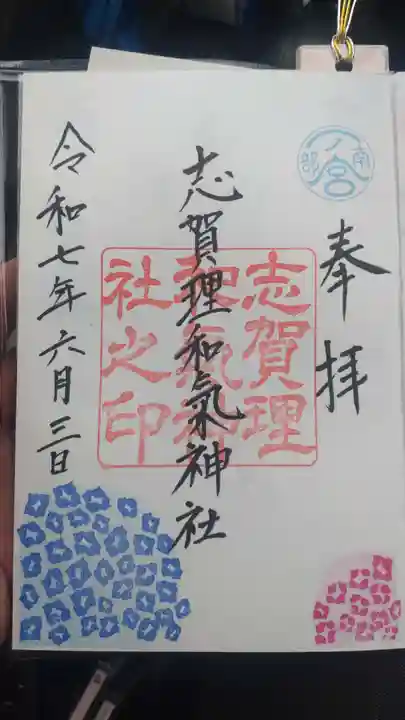 南部
一ノ宮
奉拝
志賀理和氣神社
志賀理
和氣神
社之印
令和七年六月三日